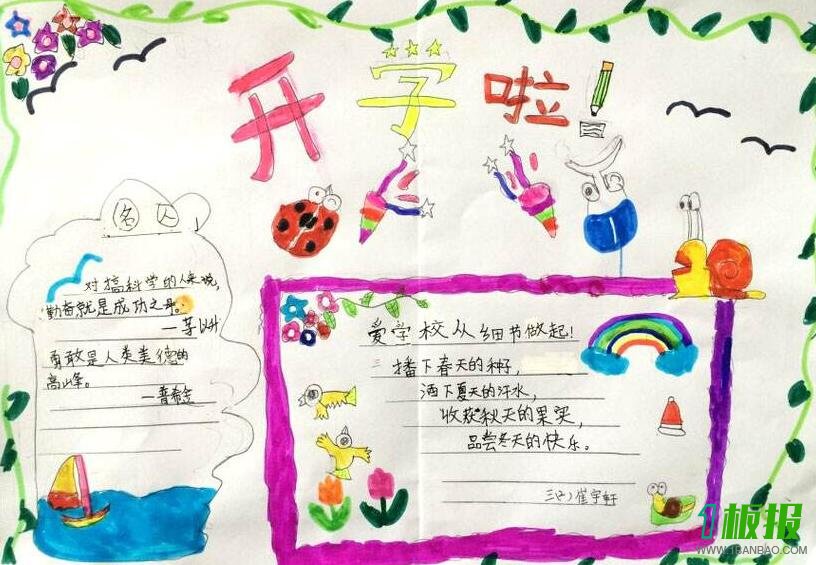 开学啦!
名人
对搞科学的人来说,
勤奋就是成功之母。
—茅以升
勇敢是人类美德的
高峰。
—普希金
爱学校从细节做起!
播下春天的种子,
洒下夏天的汗水,
收获秋天的果实,
品尝冬天的快乐。
三(2)崔宇轩
板报
WWW.1BANBAO.COM